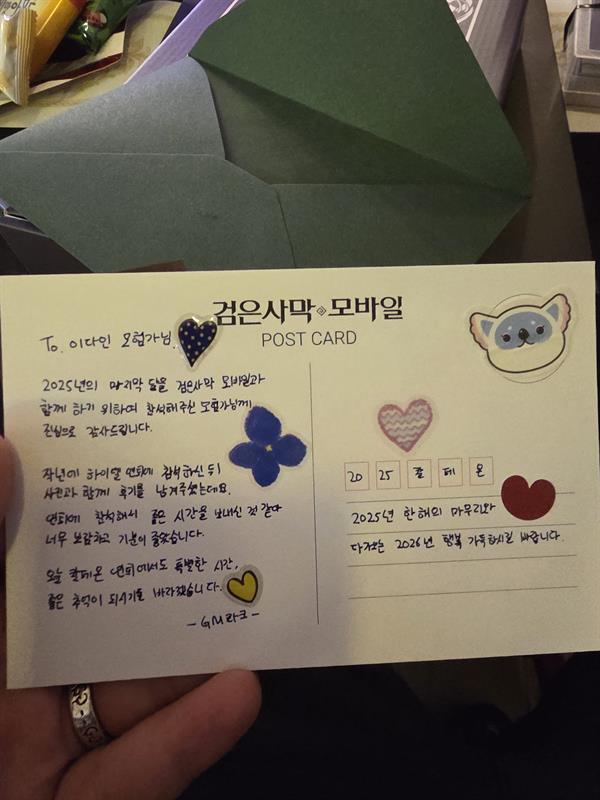 검은사막 모바일
POST CARD
To. 이다인 모험가님.
2025년의 마지막 달을 검은사막 모바일과
함께 하기 위하여 참석해주신 모험가님께
진심으로 감사드립니다.
작년에 하이델 연회에 참석하신 뒤
사진과 함께 후기를 남겨주셨는데요.
연회에 참석해서 좋은 시간을 보내신 것 같아
너무 보람차고 기분이 좋았습니다.
오늘 칼페온 연회에서도 특별한 시간,
좋은 추억이 되시기를 바라겠습니다.
- GM라크 -
20 25 칼 페 온
2025년 한해의 마무리와
다가오는 2026년 행복 가득하시길 바랍니다.